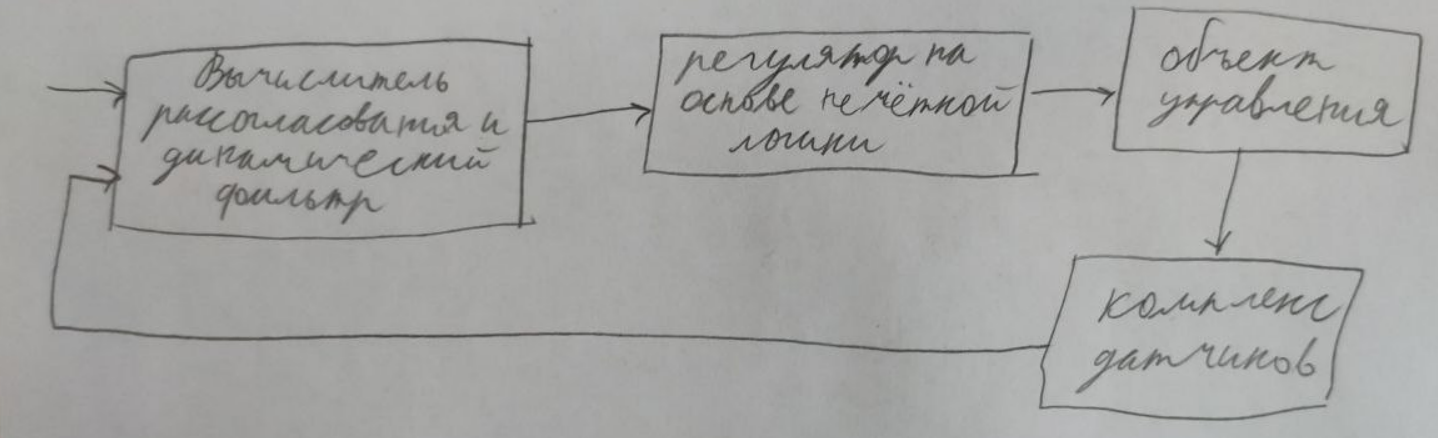 Вычислитель
рассогласования и
динамический
фильтр
регулятор на
основе нечётной
логики
объект
управления
комплекс
датчиков